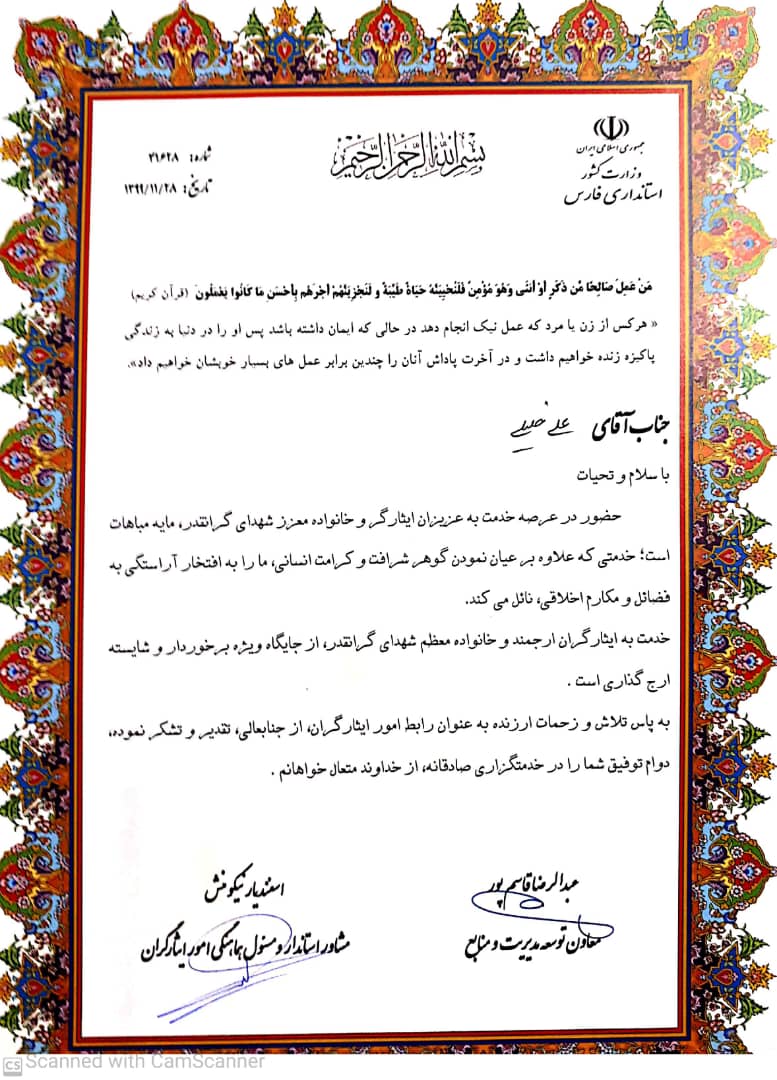 جمهوری اسلامی ایران
وزارت کشور
استانداری فارس
بسم الله الرحمن الرحیم
شماره: ۳۱۶۲۸
تاریخ: ۱۳۹۹/۱۱/۲۸
مَنْ عَمِلَ صَالِحًا مِّن ذَكَرٍ أَوْ أُنثَى وَهُوَ مُؤْمِنٌ فَلَنُحْيِيَنَّهُ حَيَاةً طَيِّبَةً وَ لَنَجْزِيَنَّهُمْ أَجْرَهُم بِأَحْسَنِ مَا كَانُوا يَعْمَلُونَ (قرآن کریم)
« هرکس از زن یا مرد که عمل نیک انجام دهد در حالی که ایمان داشته باشد پس او را در دنیا به زندگی
پاکیزه زنده خواهیم داشت و در آخرت پاداش آنان را چندین برابر عمل های بسیار خویشان خواهیم داد».
جناب آقای علی خلیلی
با سلام و تحیات
حضور در عرصه خدمت به عزیزان ایثارگر و خانواده معزز شهدای گرانقدر، مایه مباهات
است؛ خدمتی که علاوه بر عیان نمودن گوهر شرافت و کرامت انسانی، ما را به افتخار آراستگی به
فضائل و مکارم اخلاقی، نائل می کند.
خدمت به ایثارگران ارجمند و خانواده معظم شهدای گرانقدر، از جایگاه ویژه برخوردار و شایسته
ارج گذاری است .
به پاس تلاش و زحمات ارزنده به عنوان رابط امور ایثارگران، از جنابعالی، تقدیر و تشکر نموده،
دوام توفیق شما را در خدمتگزاری صادقانه، از خداوند متعال خواهانم .
عبدالرضا قاسم پور
معاون توسعه مدیریت و منابع
اسفندیار نیکومنش
مشاور استاندار و مسئول هماهنگی امور ایثارگران
CS Scanned with CamScanner